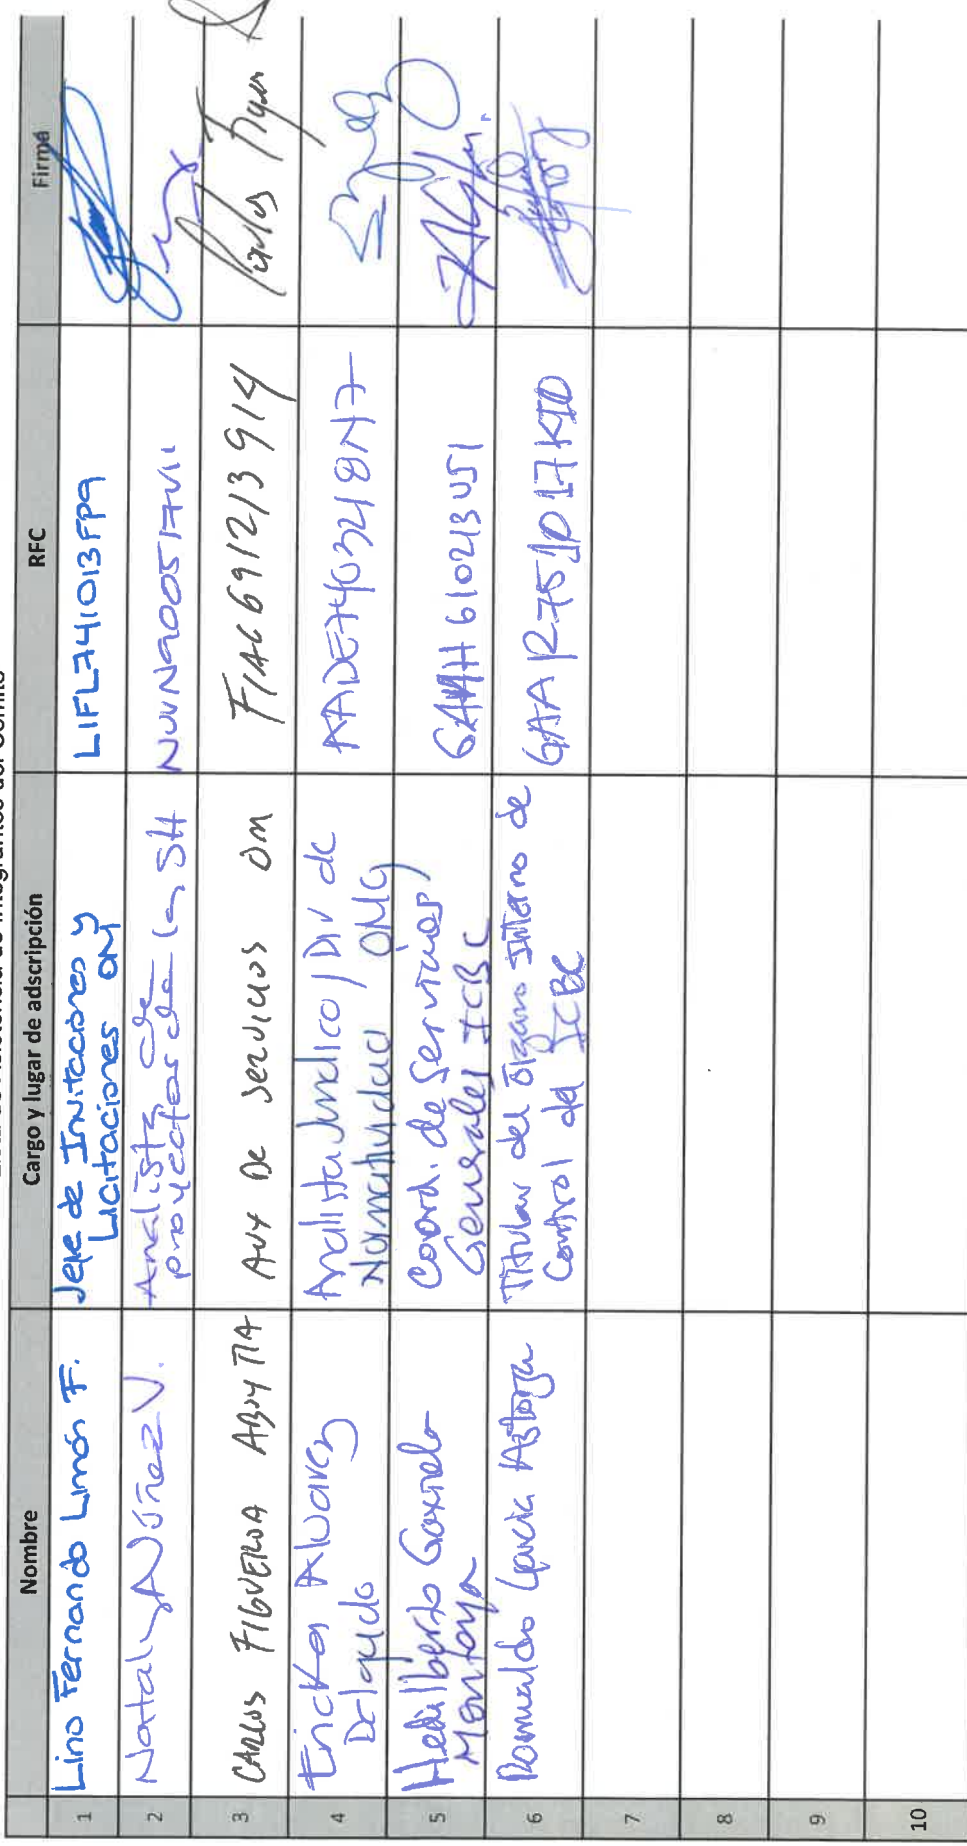 Nombre
Cargo y lugar de adscripción
RFC
Firma
1
Lino Fernando Limón F.
Jefe de Invitaciones y
Licitaciones OM
LIFL741013FP9
2
Nataly Núñez V.
Analista de
proyectos de la SH
3
CARLOS FIGUEROA ABOYTIA
AUX DE SERVICIOS OM
FIAC691213914
Carlos Figueroa
4
Ericka Alvarez
Delgado
Analista Jurídico / Div de
Normatividad OMG
AADE7403218N7
5
Hedilberto
Montoya
Coord. de Servicios
Generales ICBC
6
Romualdo García Astorga
Titular del Órgano Interno de
Control del ICBC
7
8
9
10